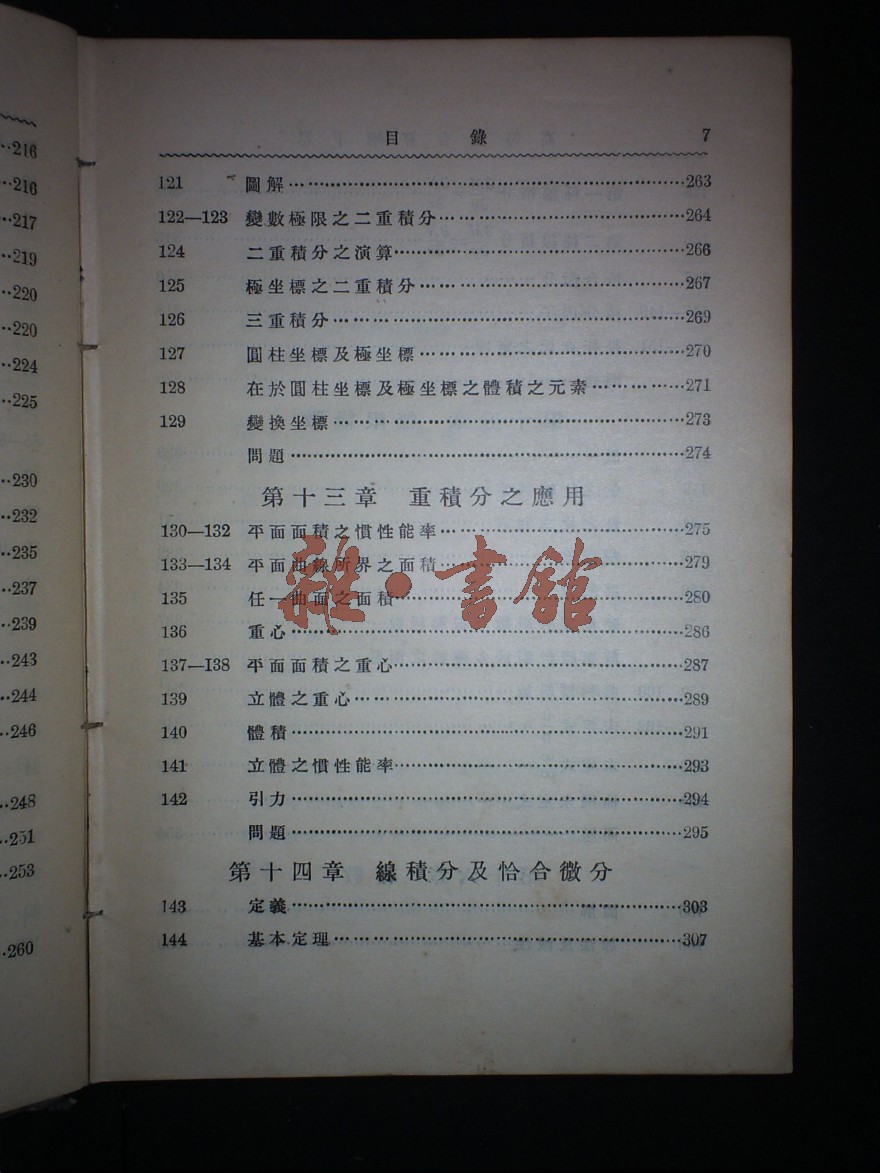 ··216
··216
··217
··219
··220
··220
··224
··225
··230
··232
··235
··237
··239
··243
··244
··246
··248
··251
··253
··260
目 錄 7
121 圖解…………………………263
122—123 變數極限之二重積分…………………………264
124 二重積分之演算…………………………266
125 極坐標之二重積分…………………………267
126 三重積分…………………………269
127 圓柱坐標及極坐標…………………………270
128 在於圓柱坐標及極坐標之體積之元素……………271
129 變換坐標…………………………273
問題…………………………274
第十三章 重積分之應用
130—132 平面面積之慣性能率…………………………275
133—134 平面曲線所界之面積…………………………279
135 任一曲面之面積…………………………280
136 重心…………………………286
137—138 平面面積之重心…………………………287
139 立體之重心…………………………289
140 體積…………………………291
141 立體之慣性能率…………………………293
142 引力…………………………294
問題…………………………295
第十四章 線積分及恰合微分
143 定義…………………………303
144 基本定理…………………………307
雜·書館